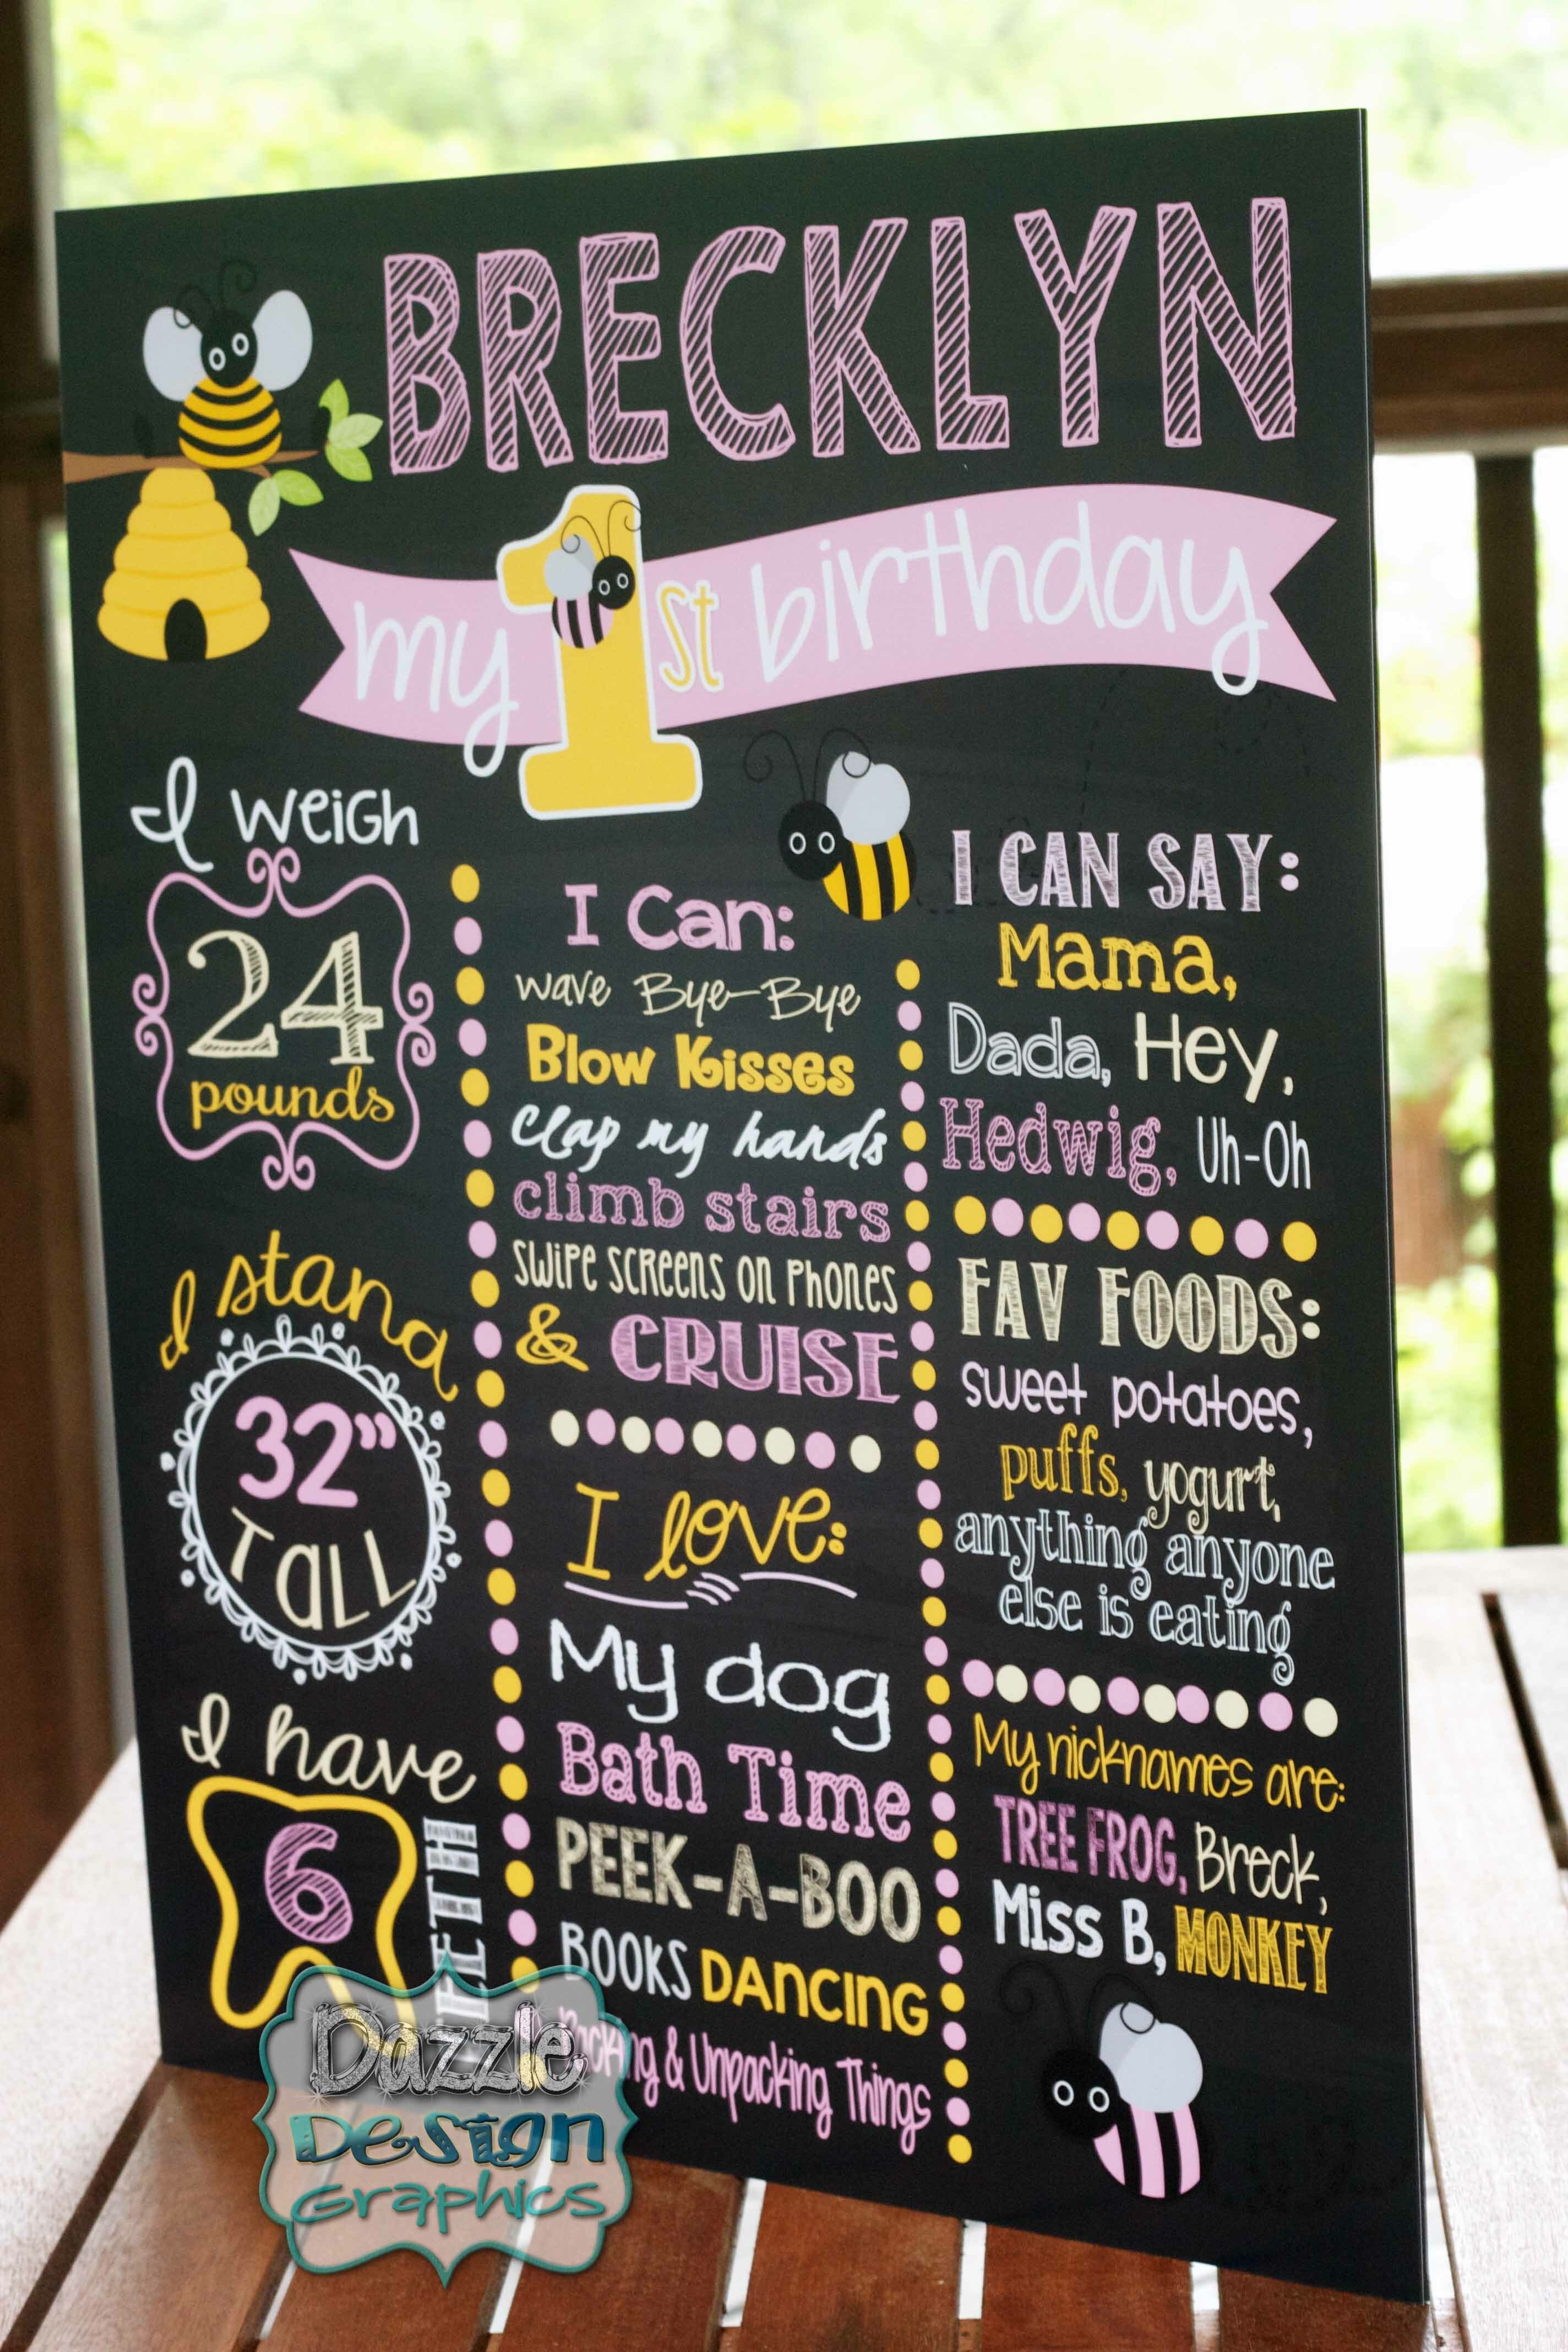 BRECKLYN
my 1st birthday
I weigh
24
pounds
I stand
32”
Tall
I have
6
TEETH
I Can:
wave Bye-Bye
Blow Kisses
Clap my hands
climb stairs
Swipe screens on phones
& CRUISE
I love:
My dog
Bath Time
PEEK-A-BOO
BOOKS DANCING
Packing & Unpacking Things
I CAN SAY:
Mama,
Dada, Hey,
Hedwig, Uh-Oh
FAV FOODS:
sweet potatoes,
puffs, yogurt,
anything anyone
else is eating
My nicknames are:
TREE FROG, Breck,
Miss B, MONKEY
Dazzle
Design
Graphics